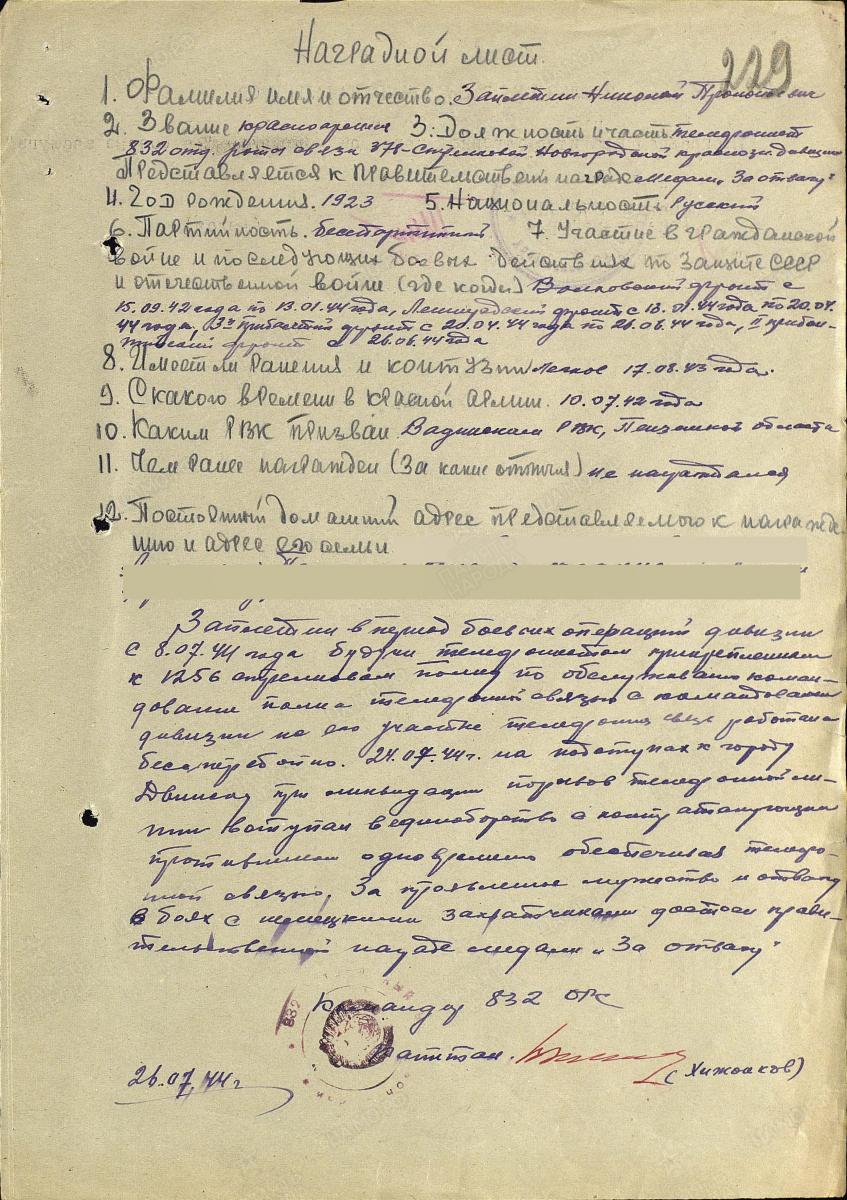 Наградной лист
229
1. Фамилия имя и отчество. Николай
2. Звание красноармеец 3. Должность и часть телефонист
832 отд. рота связи 378 Стрелковой Новгородской краснозн. дивизии
Представляется к Правительствен награде Медали „За отвагу"
4. Год рождения. 1923 5. Национальность Русский
6. Партийность. беспартийный 7. Участие в гражданской
войне и последующих боевых действиях по защите СССР
и отечественной войны (где когда) Волховский фронт с
15.09.42 года по 13.01.44 года, Ленинградский фронт с 13.01.44 года по 20.04.
44 года, 3й прибалтий фронт с 20.04.44 года по 26.06.44 года, II прибал-
тийский фронт с 26.06.44 года
8. Имеет ли ранения и контузии Легкое 17.08.43 года.
9. С какого времени в красной армии. 10.07.42 года
10. Каким РВК призван Вадинским РВК, Пензенской области
11. Чем ранее награжден (За какие отличия) не награждался
12. Постоянный домашний адрес представляемого к награжде-
нию и адрес его семьи
в период боевых операций дивизии
с 8.07.44 года будучи телефонистом прикрепленным
к 1256 стрелковом полку по обслуживанию коман-
дования полка телефонной связью с командованием
дивизии на его участке телефонная связь работала
бесперебойно. 24.07.44г. на подступах к городу
Двинску при ликвидации порывов телефонной ли-
нии вступал в единоборство с контратакующим
противником одновременно обеспечивая телефо-
нной связью. За проявленное мужество и отвагу
в боях с немецкими захватчиками достоин прави-
тельственной награде медали „За отвагу"
Командир 832 ОРС
капитан. (Хижняков)
26.07.44 г